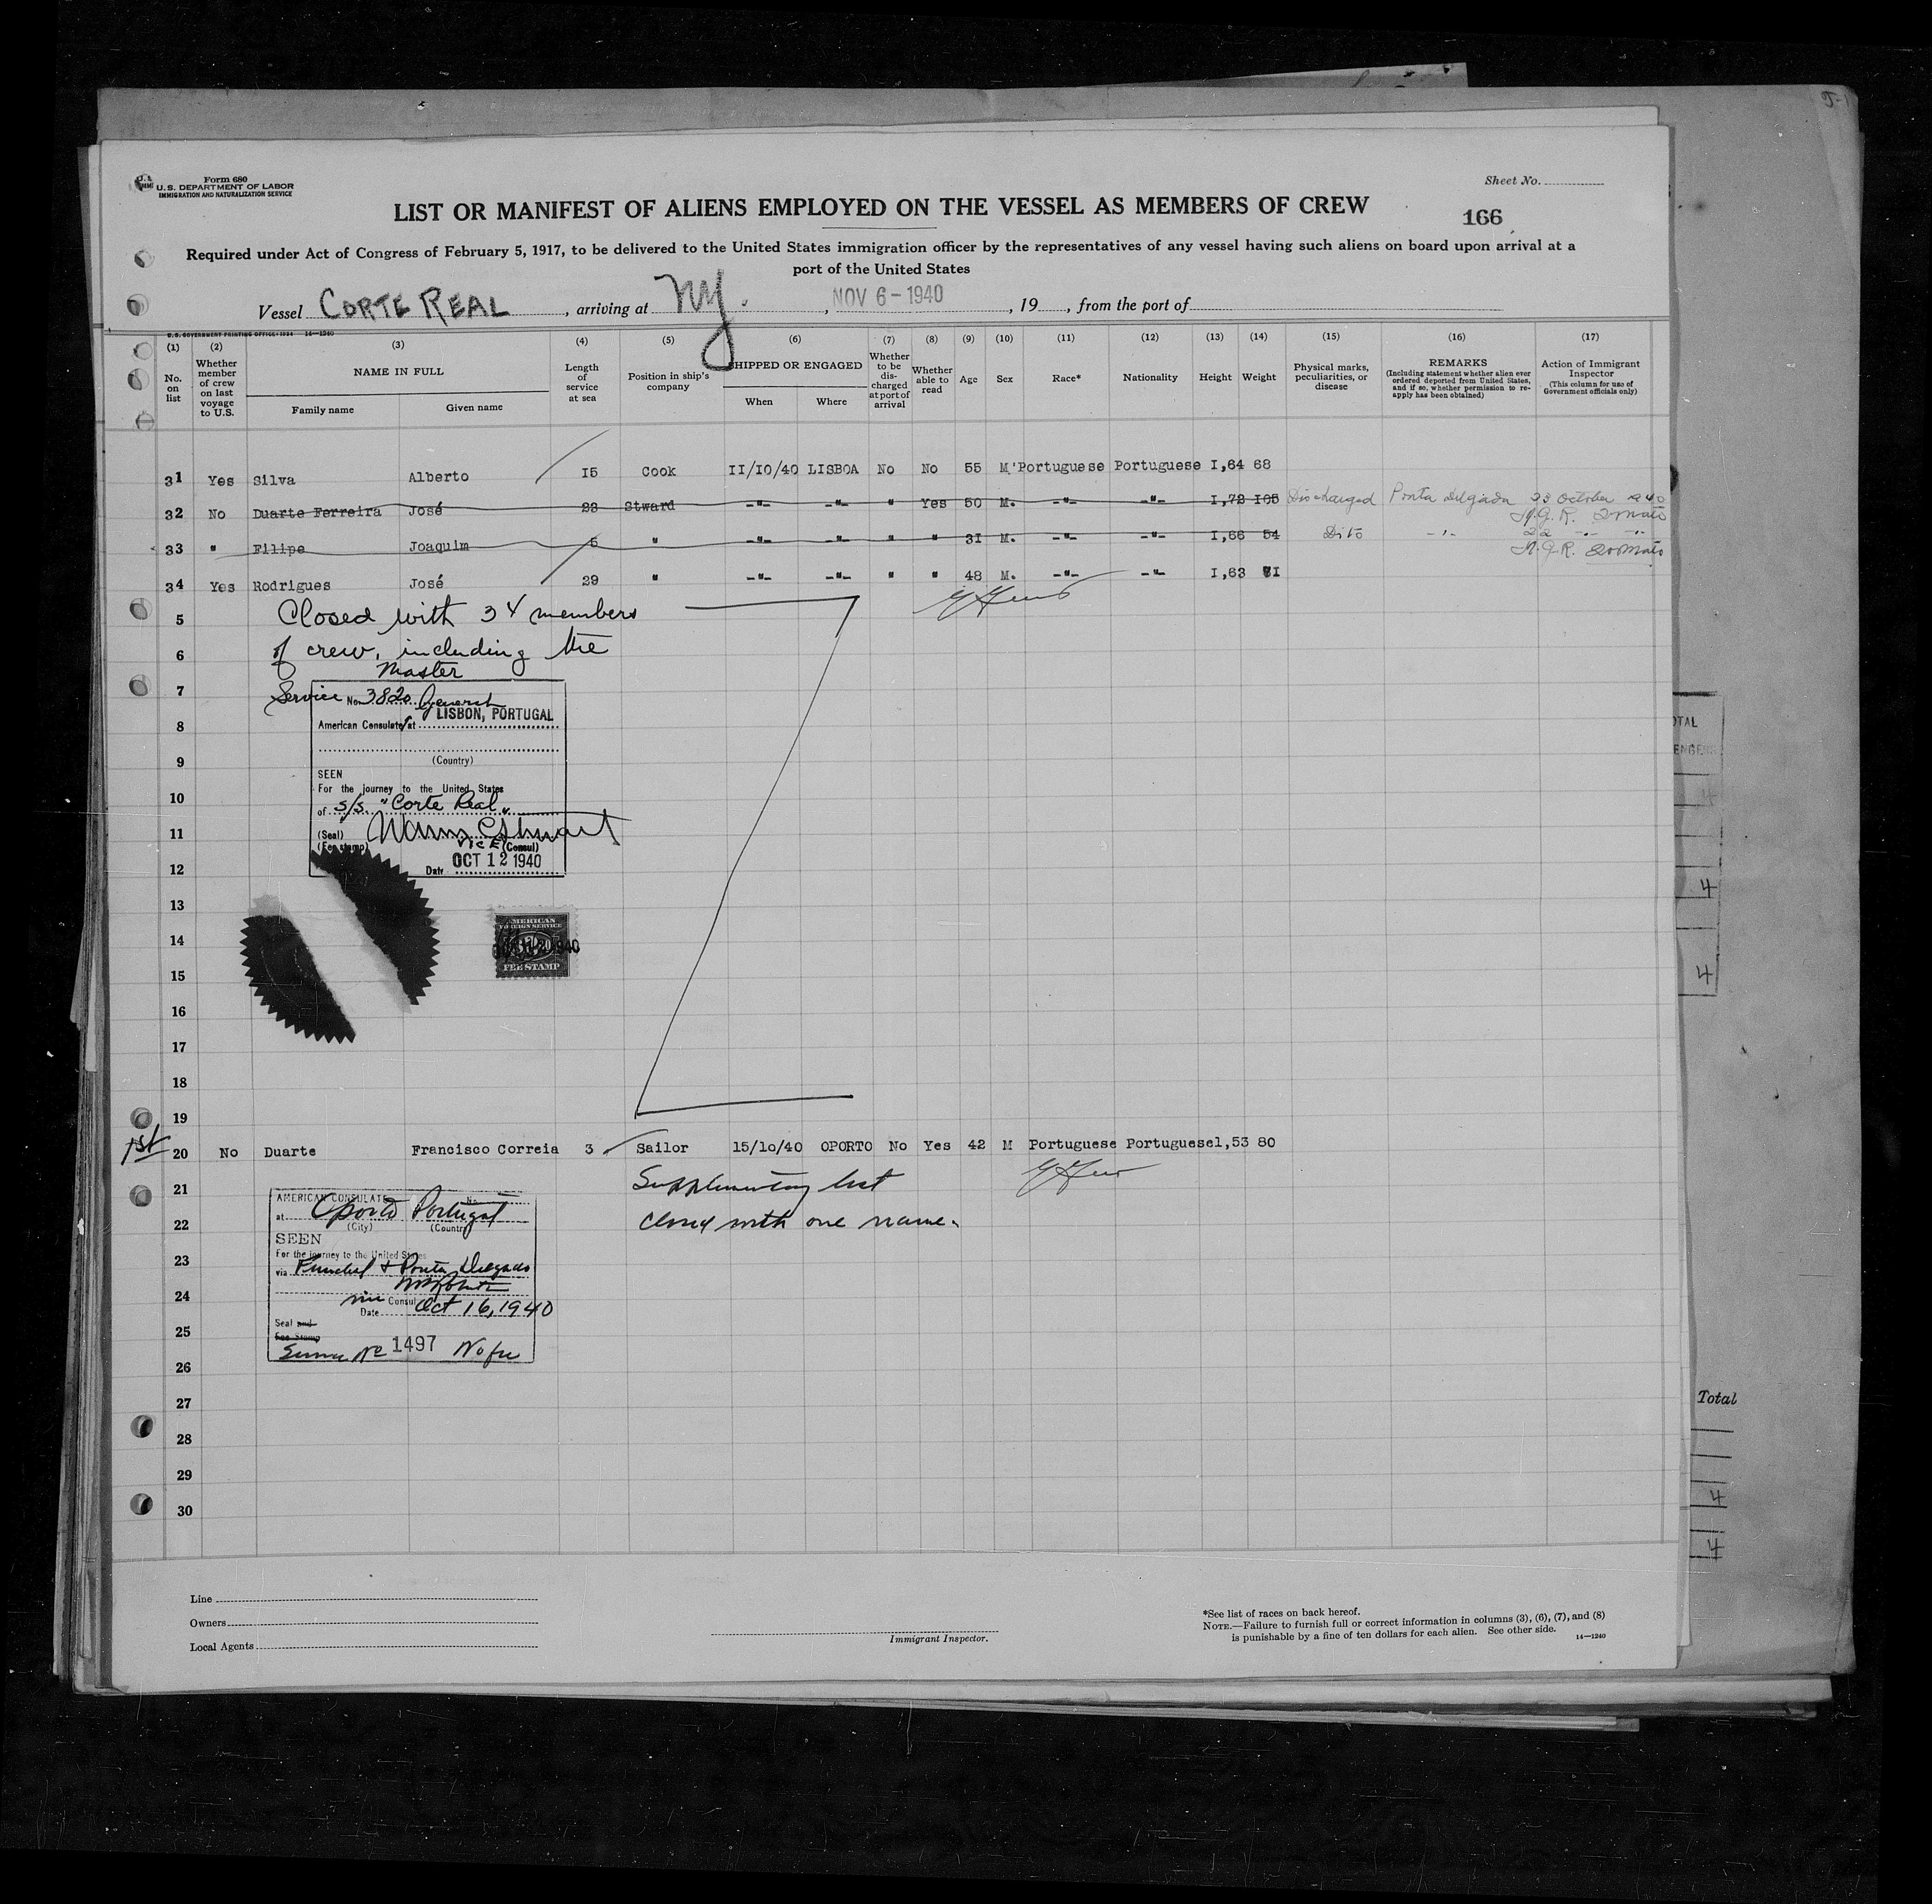 Form 680
U.S. DEPARTMENT OF LABOR
IMMIGRATION AND NATURALIZATION SERVICE
Sheet No.
LIST OR MANIFEST OF ALIENS EMPLOYED ON THE VESSEL AS MEMBERS OF CREW
166
Required under Act of Congress of February 5, 1917, to be delivered to the United States immigration officer by the representatives of any vessel having such aliens on board upon arrival at a
port of the United States
Vessel CORTE REAL, arriving at NY., NOV 6-1940, 19, from the port of
U.S. GOVERNMENT PRINTING OFFICE: 1934 14—1240
(1) (2) (3) (4) (5) (6) (7) (8) (9) (10) (11) (12) (13) (14) (15) (16) (17)
No. on list
Whether member of crew on last voyage to U.S.
NAME IN FULL
Family name Given name
Length of service at sea
Position in ship's company
SHIPPED OR ENGAGED
When Where
Whether to be discharged at port of arrival
Whether able to read
Age Sex Race* Nationality Height Weight
Physical marks, peculiarities, or disease
REMARKS
(Including statement whether alien ever ordered deported from United States, and if so, whether permission to reapply has been obtained)
Action of Immigrant Inspector
(This column for use of Government officials only)
31 Yes Silva Alberto 15 Cook II/IO/40 LISBOA No No 55 M' Portuguese Portuguese I,64 68
32 No Duarte Ferreira José 23 Stward -"- -"- " Yes 50 M. -"- -"- I,72 105 Discharged Ponta Delgada 23 October 1940
33 " Filipe Joaquim 5 " -"- -"- " " 3I M. -"- -"- I,66 54 Dito -"- 22 -"- "
34 Yes Rodrigues José 29 " -"- -"- " " 48 M. -"- -"- I,63 7I
5
Closed with 34 members
6
of crew, including the
Master
7
Service No. 3820 General
LISBON, PORTUGAL
American Consulate at
8
9
(Country)
SEEN
For the journey to the United States
10
of s/s. "Corte Real"
11
(Seal)
(Fee stamp)
VICE (Consul)
OCT 12 1940
Date
12
13
AMERICAN
FOREIGN SERVICE
14
FEE STAMP
15
16
17
18
19
1st 20 No Duarte Francisco Correia 3 Sailor 15/1o/40 OPORTO No Yes 42 M Portuguese Portuguese 1,53 80
21
Supplementary list
22
closed with one name.
AMERICAN CONSULATE No.
at Oporto Portugal
(City) (Country)
SEEN
For the journey to the United States
23
via Funchal & Ponta Delgada
24
Vice Consul
Date Oct 16, 1940
25
Seal and
Fee Stamp
Service No 1497 No fee
26
27
28
29
30
Line
Owners
Local Agents
Immigrant Inspector.
*See list of races on back hereof.
NOTE.—Failure to furnish full or correct information in columns (3), (6), (7), and (8)
is punishable by a fine of ten dollars for each alien. See other side.
14—1240
Total
4
4
4
4